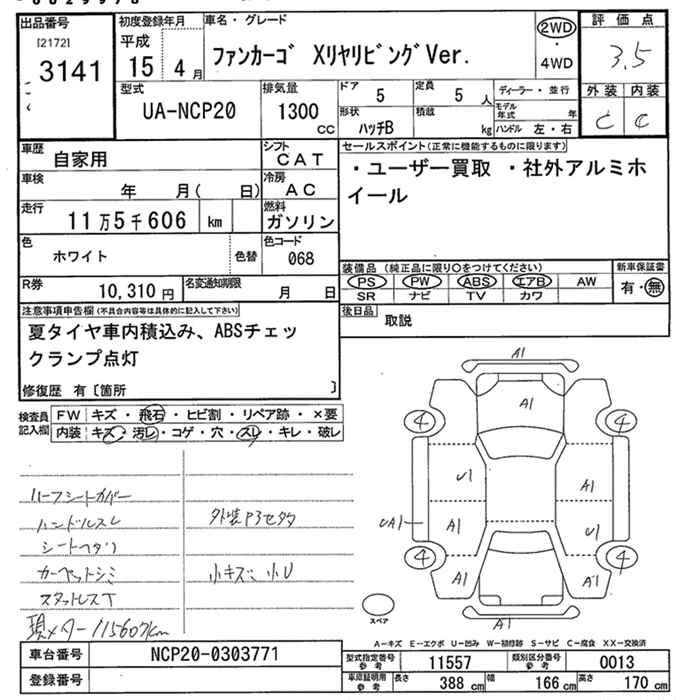 出品番号
[2172]
3141
初度登録年月
平成
15 4月
車名・グレード
ファンカーゴ XリヤリビングVer.
2WD
4WD
評価点
3.5
外装 内装
C C
型式
UA-NCP20
排気量
1300
CC
ドア 5
定員 5 人
形状 ハッチB
積載 kg
ディーラー・並行
モデル年式 年
ハンドル 左・右
車歴
自家用
シフト
CAT
車検
年 月( 日)
冷房
AC
走行
11万5千606 km
燃料
ガソリン
色
ホワイト
色替
色コード
068
R券
10,310円
名変通知期限
月 日
セールスポイント(正常に機能するものに限ります)
・ユーザー買取 ・社外アルミホ
イール
装備品 (純正品に限り○をつけてください)
PS PW ABS エアB AW
SR ナビ TV カワ
新車保証書
有・無
後日品
取説
注意事項申告欄(不具合内容等は具体的に記入して下さい)
夏タイヤ車内積込み、ABSチェッ
クランプ点灯
修復歴 有〔箇所 〕
検査員
記入欄
FW キズ・飛石・ヒビ割・リペア跡・×要
内装 キズ・汚レ・コゲ・穴・スレ・キレ・破レ
ハーフシートカバー
ハンドルスレ
シートヘタリ
カーペットシミ
スタットレスT
現メター115607km
小キズ 小U
A1
A1
4
4
U1
A1
A1
UA1
U1
4
4
A1
A1
A1
スペア
A-キズ E-エクボ U-凹み W-補修跡 S-サビ C-腐食 XX-交換済
車台番号
NCP20-0303771
型式指定番号
参考
11557
類別区分番号
参考
0013
車庫証明用
参考
長さ 388 cm
幅 166 cm
高さ 170 cm